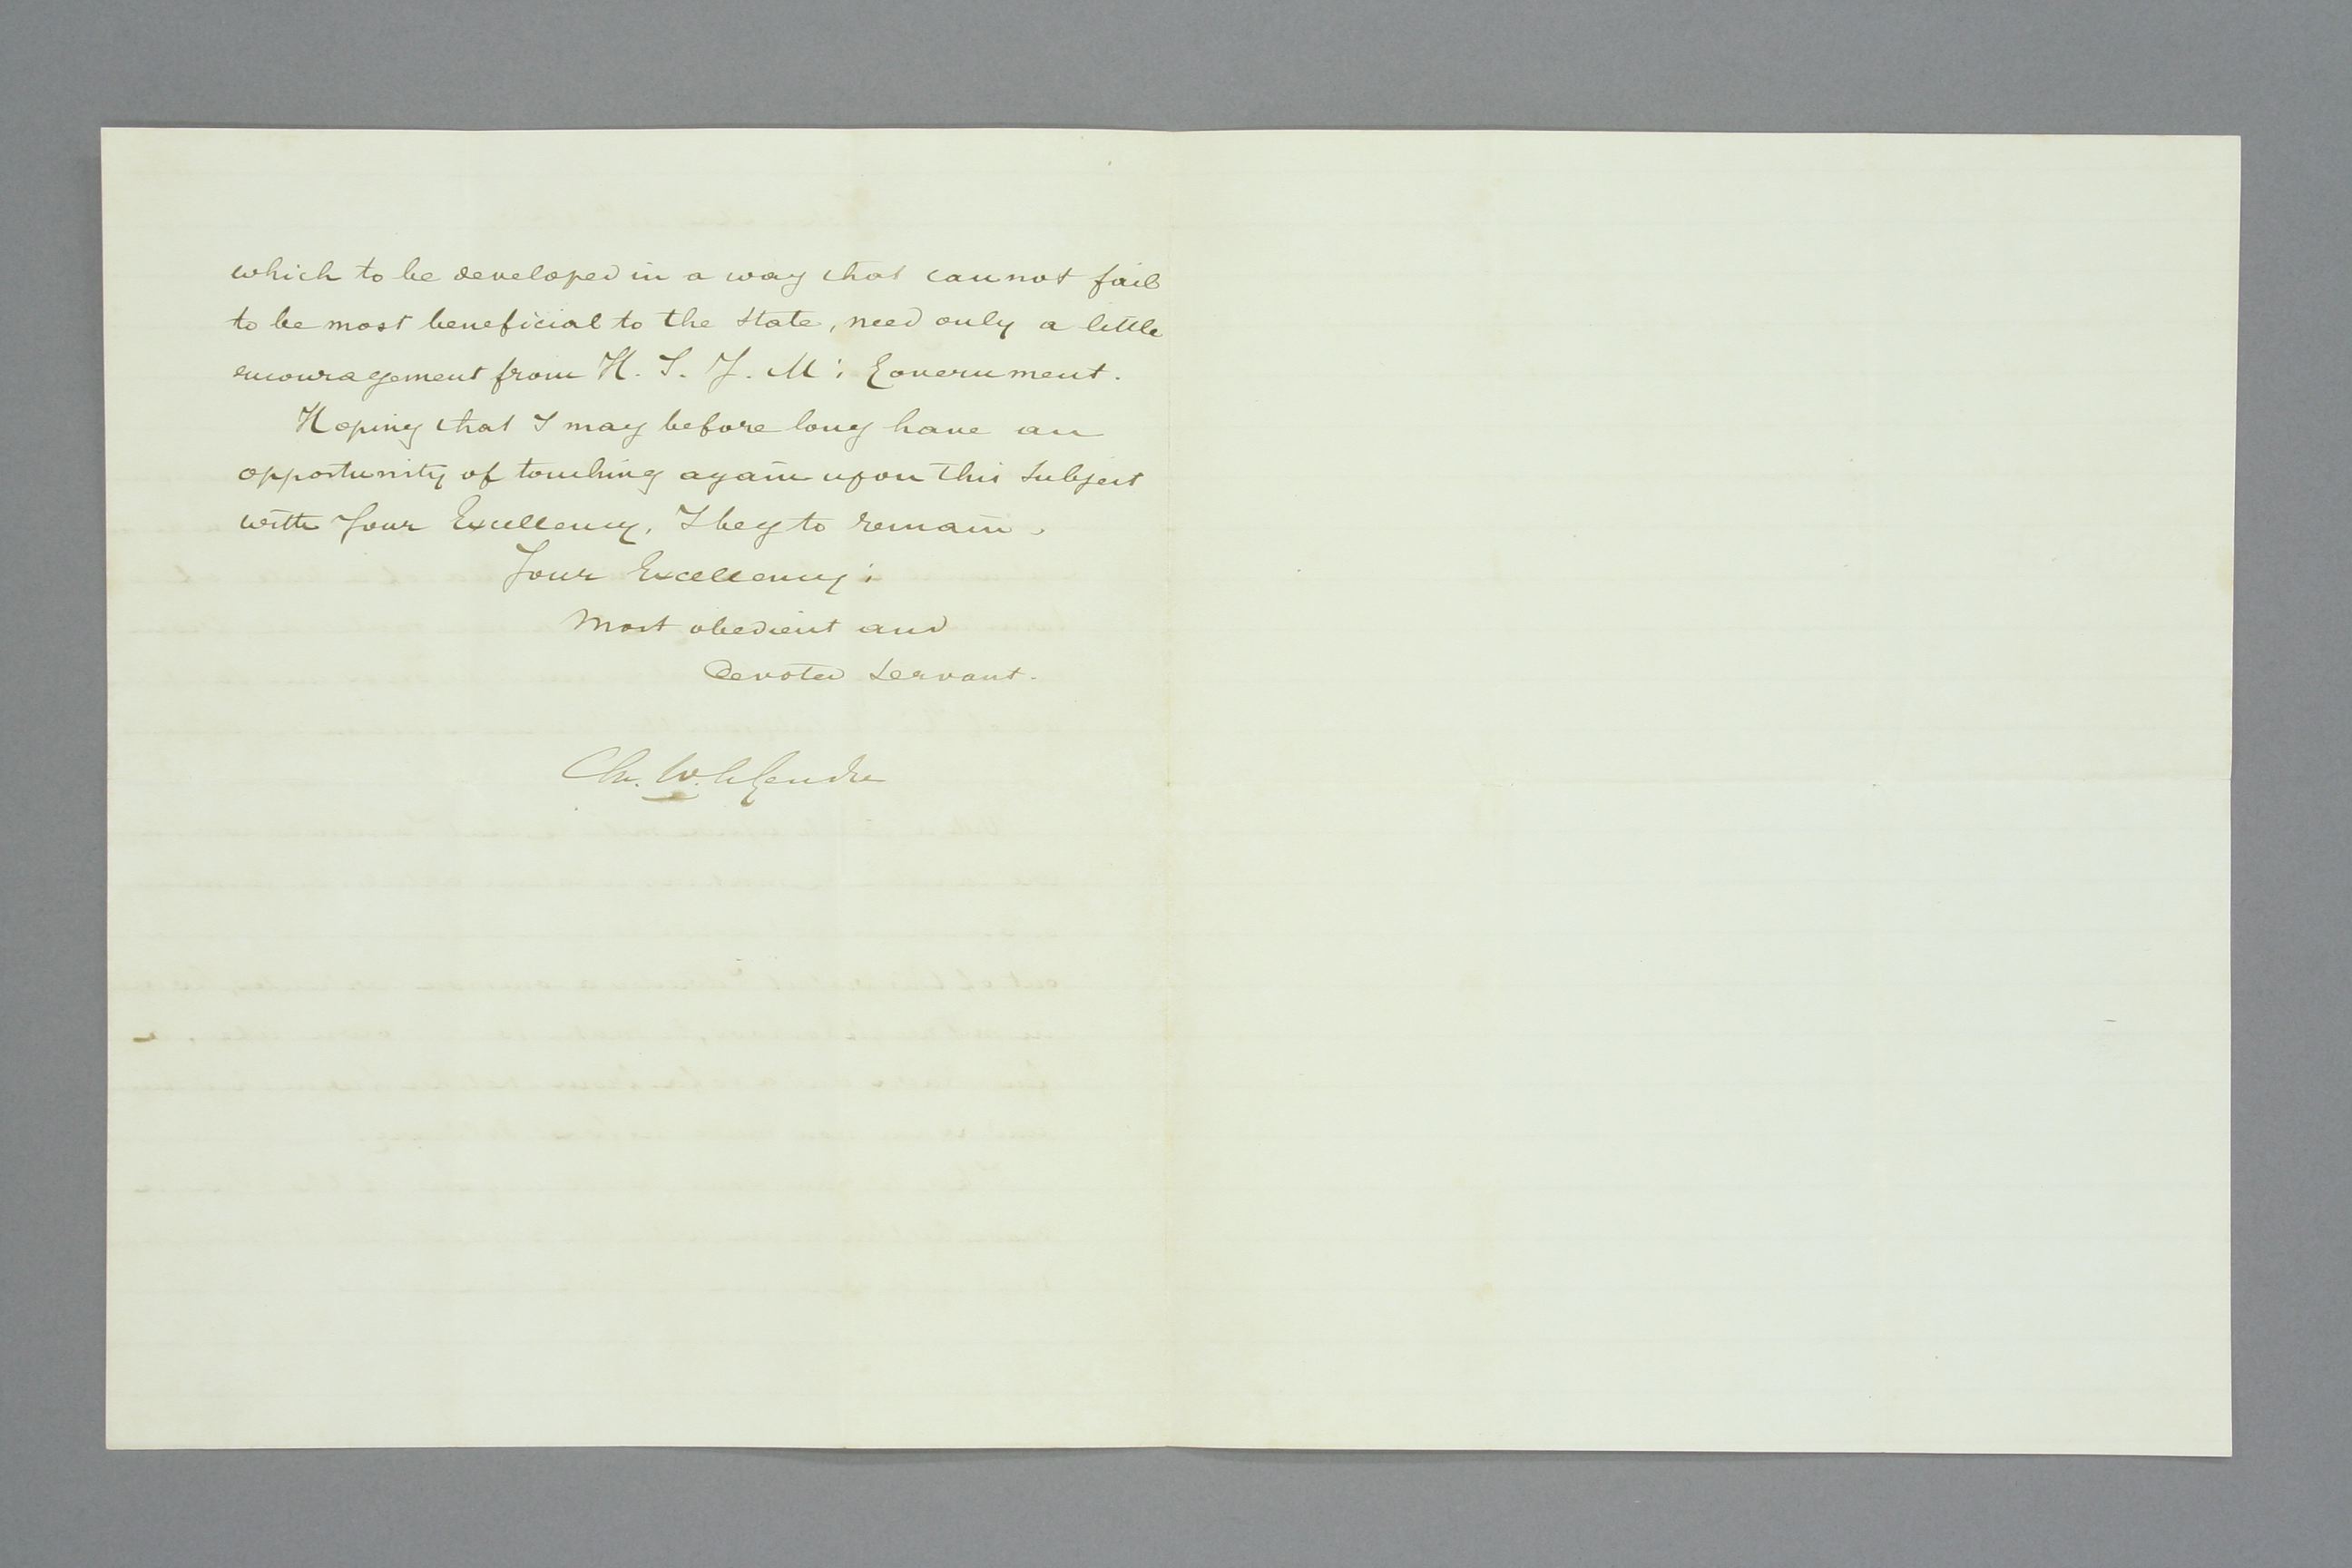 which to be developed in a way that cannot fail
to be most beneficial to the State, need only a little
encouragement from H. I. J. M's Government.
Hoping that I may before long have an
opportunity of touching again upon this Subject
with Your Excellency, I beg to remain,
Your Excellency's
Most obedient and
Devoted Servant.
Ch. W. LeGendre